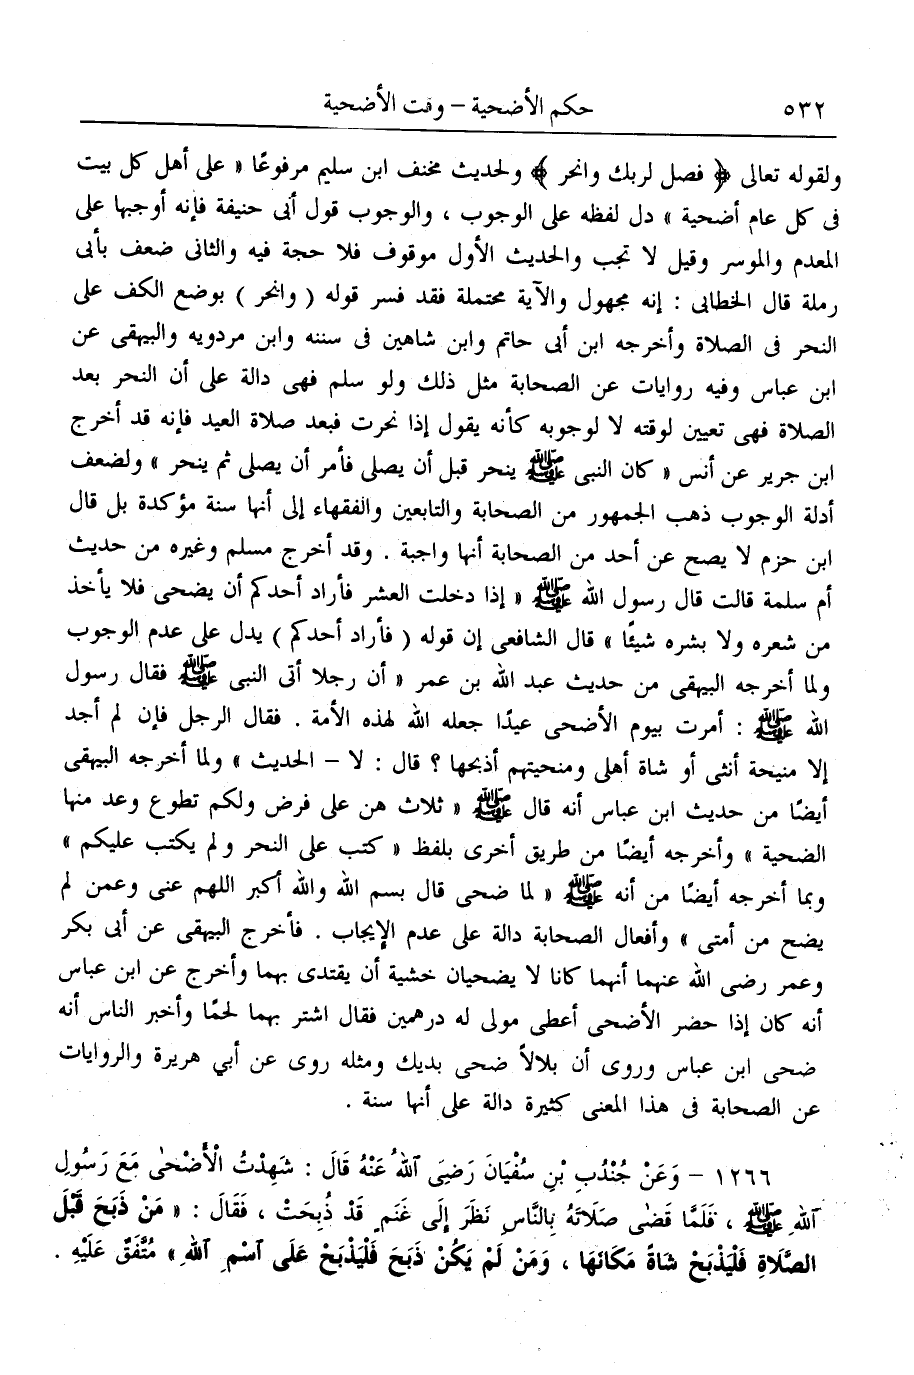 ٥٣٢ حكم الأضحية – وقت الأضحية
ولقوله تعالى ﴿ فصل لربك وانحر ﴾ ولحديث مخنف ابن سليم مرفوعًا « على أهل كل بيت
فى كل عام أضحية » دل لفظه على الوجوب ، والوجوب قول أبى حنيفة فإنه أوجبها على
المعدم والموسر وقيل لا تجب والحديث الأول موقوف فلا حجة فيه والثانى ضعف بأبى
رملة قال الخطابى : إنه مجهول والآية محتملة فقد فسر قوله ( وانحر ) بوضع الكف على
النحر فى الصلاة وأخرجه ابن أبى حاتم وابن شاهين فى سننه وابن مردويه والبيهقى عن
ابن عباس وفيه روايات عن الصحابة مثل ذلك ولو سلم فهى دالة على أن النحر بعد
الصلاة فهى تعيين لوقته لا لوجوبه كأنه يقول إذا نحرت فبعد صلاة العيد فإنه قد أخرج
ابن جرير عن أنس « كان النبى ﷺ ينحر قبل أن يصلى فأمر أن يصلى ثم ينحر » ولضعف
أدلة الوجوب ذهب الجمهور من الصحابة والتابعين والفقهاء إلى أنها سنة مؤكدة بل قال
ابن حزم لا يصح عن أحد من الصحابة أنها واجبة . وقد أخرج مسلم وغيره من حديث
أم سلمة قالت قال رسول الله ﷺ « إذا دخلت العشر فأراد أحدكم أن يضحى فلا يأخذ
من شعره ولا بشره شيئًا » قال الشافعى إن قوله ( فأراد أحدكم ) يدل على عدم الوجوب
ولما أخرجه البيهقى من حديث عبد الله بن عمر « أن رجلا أتى النبى ﷺ فقال رسول
الله ﷺ : أمرت بيوم الأضحى عيدًا جعله الله لهذه الأمة . فقال الرجل فإن لم أجد
إلا منيحة أنثى أو شاة أهلى ومنحيتهم أذبحها ؟ قال : لا – الحديث » ولما أخرجه البيهقى
أيضًا من حديث ابن عباس أنه قال ﷺ « ثلاث هن على فرض ولكم تطوع وعد منها
الضحية » وأخرجه أيضًا من طريق أخرى بلفظ « كتب على النحر ولم يكتب عليكم »
وبما أخرجه أيضًا من أنه ﷺ « لما ضحى قال بسم الله والله أكبر اللهم عنى وعمن لم
يضح من أمتى » وأفعال الصحابة دالة على عدم الإيجاب . فأخرج البيهقى عن أبى بكر
وعمر رضى الله عنهما أنهما كانا لا يضحيان خشية أن يقتدى بهما وأخرج عن ابن عباس
أنه كان إذا حضر الأضحى أعطى مولى له درهمين فقال اشتر بهما لحمًا وأخبر الناس أنه
ضحى ابن عباس وروى أن بلالاً ضحى بديك ومثله روى عن أبي هريرة والروايات
عن الصحابة فى هذا المعنى كثيرة دالة على أنها سنة .
١٢٦٦ – وَعَنْ جُنْدُبِ بْنِ سُفْيَانَ رَضِيَ ٱللهُ عَنْهُ قَالَ : شَهِدْتُ الْأَضْحَى مَعَ رَسُولِ
ٱللهِ ﷺ ، فَلَمَّا قَضَى صَلَاتَهُ بِالنَّاسِ نَظَرَ إِلَى غَنَمٍ قَدْ ذُبِحَتْ ، فَقَالَ : « مَنْ ذَبَحَ قَبْلَ
الصَّلَاةِ فَلْيَذْبَحْ شَاةً مَكَانَهَا ، وَمَنْ لَمْ يَكُنْ ذَبَحَ فَلْيَذْبَحْ عَلَى ٱسْمِ ٱللهِ » مُتَّفَقٌ عَلَيْهِ .